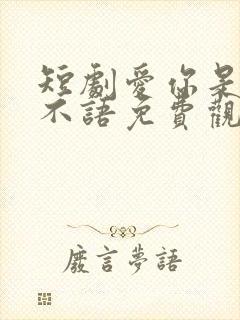 短劇愛你是
不語免費觀
廢言夢語